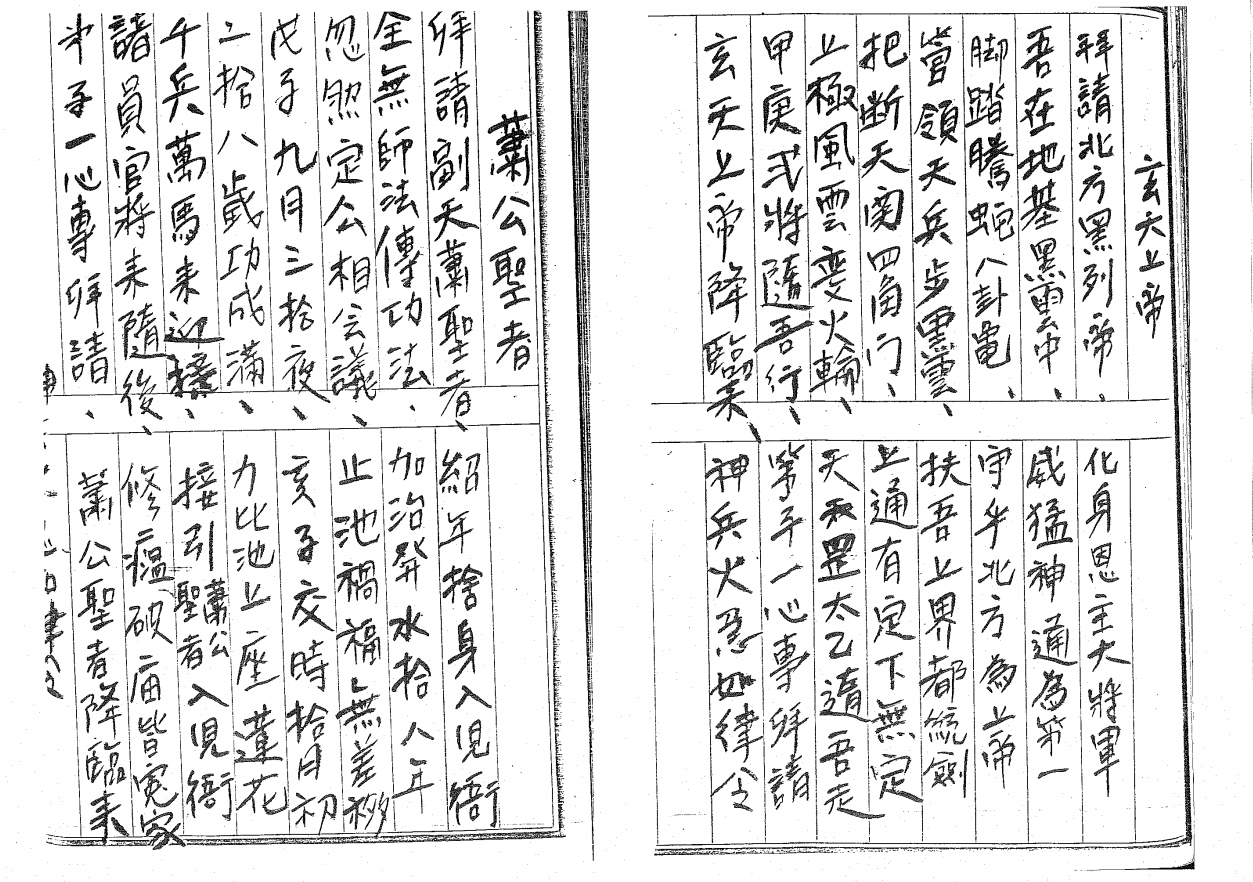 玄天上帝
拜請北方黑列帝 化身恩主大將軍
吾在地基黑雲中 威猛神通為第一
脚踏騰蛇八卦黽 守牛北方為上帝
營領天兵步黑雲 扶吾上界都統劍
把断天関四面门 上通有定下無定
上極風雲变火輪 天和罡太乙隨吾走
甲庚弍將隨吾行 等子一心專拜請
玄天上帝降臨来 神兵火急如律令
蕭公聖者
拜請副天蕭聖者 紹年捨身入児衙
全無師法傳功法 加治昇水拾八年
忽然定公相会議 止池禍福無差移
戊子九月三拾夜 亥子交時拾月初
二拾八歲功成滿 力比池上座蓮花
千兵萬馬来迎接 接引蕭公聖者入児衙
諸員官將来隨後 修瘟破庙皆冤家
弟子一心專拜請 蕭公聖者降臨来